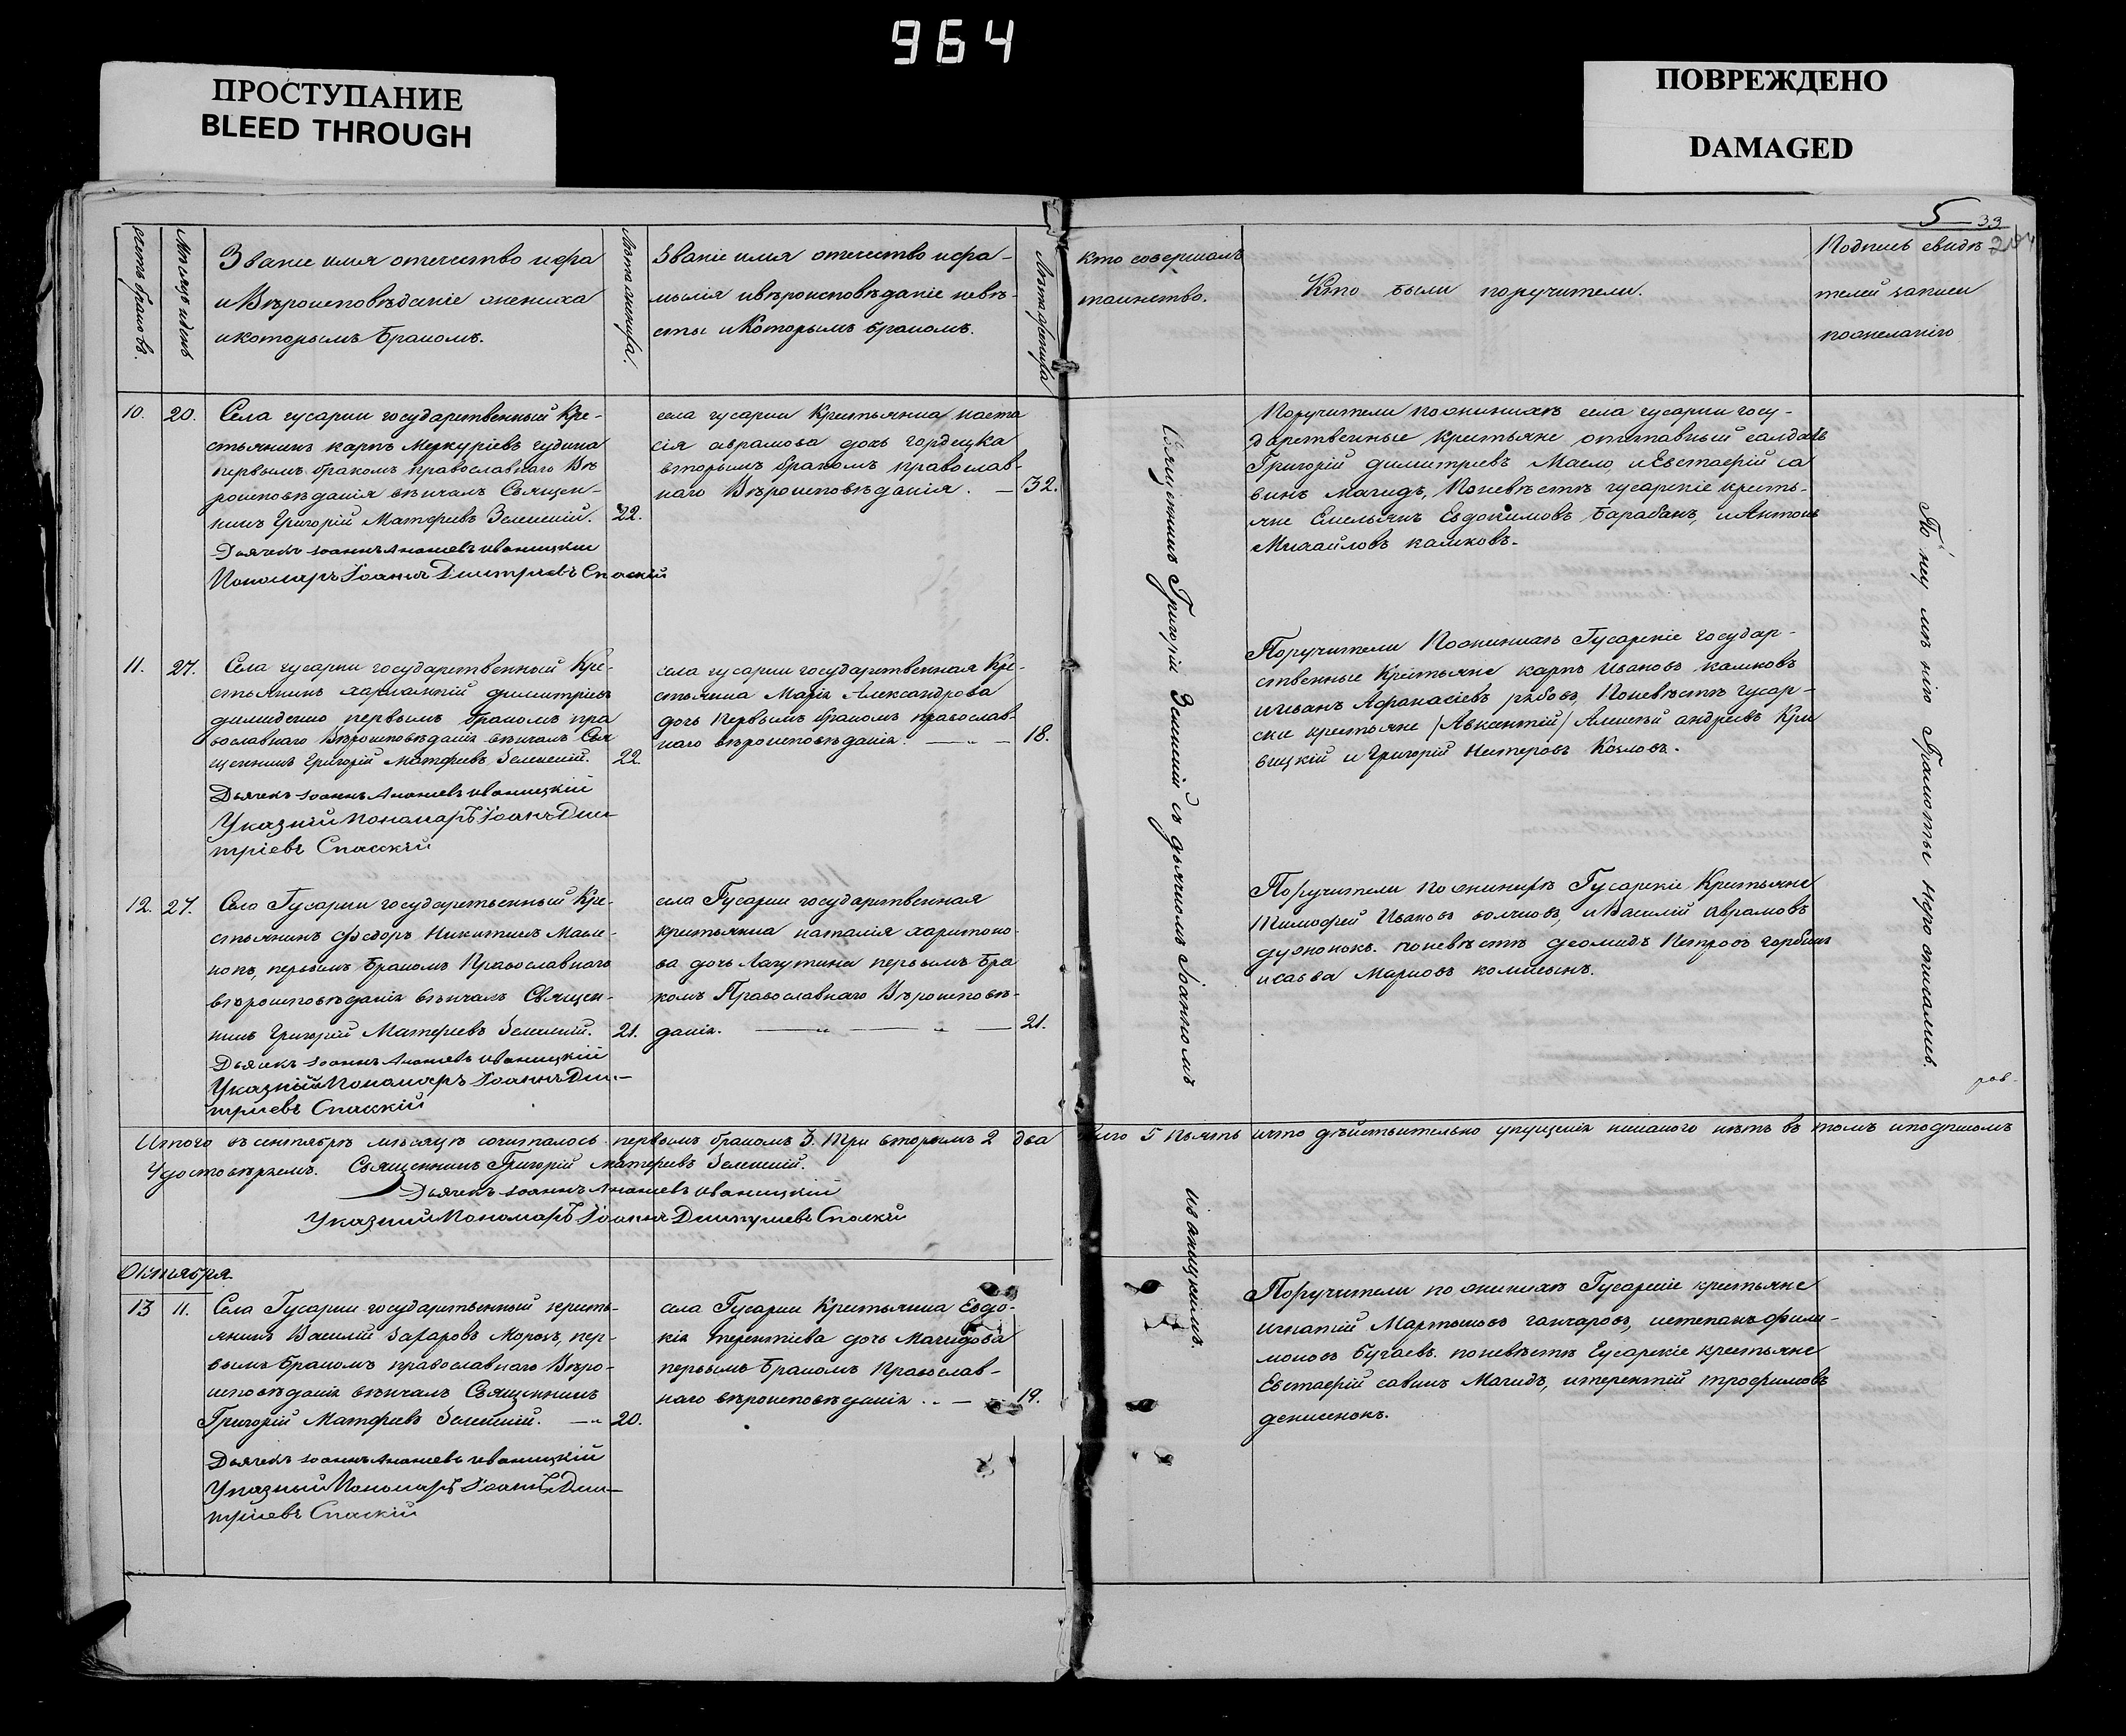 964
ПРОСТУПАНИЕ
BLEED THROUGH
ПОВРЕЖДЕНО
DAMAGED
5 33
Месяцъ и день
Званіе имя отечество и фа
и Вѣроисповѣданіе жениха
и которымъ Бракомъ.
Лѣта жениха.
Званіе имя отечество и фа-
милія и вѣроисповѣданіе невѣ-
сты и Которымъ бракомъ.
кто совершалъ
таинство.
Кто были поручители.
Подпись свидѣ
телей записи
по желанію
10. 20. Села гусарки государственный Кре-
стьянинъ карпъ Меркуріевъ гудина
первымъ бракомъ православнаго Вѣ
роисповѣданія вѣнчалъ Священ-
никъ Григорій Матфіевъ Зеленскій. 22.
Дьячекъ Іоаннъ Ананіевъ Иваницкій
Пономарь Іоаннъ Дмитріевъ Спаскій
села гусарки Крестьянка наста
сія аврамова дочь гордецка
вторымъ бракомъ православ-
наго Вѣроисповѣданія. — 32.
Поручители по жинихѣ села гусарки госу-
дарственные крестьяне отставный салдатъ
Григорій димитріевъ Масло и Евстафій са
винъ Магидъ, По невѣстѣ гусарскіе кресть-
яне Емельянъ Евдокимовъ Барабанъ, и Антонъ
Михайловъ камковъ.
11. 27. Села гусарки государственный Кре-
стьянинъ димитріевъ
первымъ бракомъ пра
вославнаго Вѣроисповѣданія вѣнчалъ Свя
щенникъ Григорій Матфіевъ Зеленскій. 22.
Дьячекъ Іоаннъ Ананіевъ Иваницкій
Указний Пономарь Іоаннъ Дми-
тріевъ Спасскій
села гусарки государственная Кре-
стьянка Марія Александрова
дочь Первымъ бракомъ православ-
наго вѣроисповѣданія. — „ — 18.
Поручители По жинихѣ Гусарскіе государ-
ственные Крестьяне карпъ Ивановъ камковъ
и Иванъ Афанасіевъ рябовъ, По невѣстѣ гусар-
ские крестьяне Алексѣй андреевъ Кри
вицкій и Григорій Нестеровъ Козловъ.
12. 27. Села Гусарки государственный Кре-
стьянинъ Фѣдоръ Никитинъ Масле-
нокъ, первымъ бракомъ Православнаго
вѣроисповѣданія вѣнчалъ Священ-
никъ Григорій Матфіевъ Зеленскій. 21.
Дьячекъ Іоаннъ Ананіевъ Иваницкій
Указний Пономарь Іоаннъ Дми-
тріевъ Спасскій
села Гусарки государственная
крестьянка наталія харитоно-
ва дочь Лагутина первымъ Бра
комъ Православнаго Вѣроисповѣ-
данія. — „ — „ — 21.
Поручители по жинихѣ Гусарскіе Крестьяне
Тимофей Ивановъ волчковъ, и Василій аврамовъ
по невѣстѣ деомидъ Петровъ горбань
и савва Марковъ
Священникъ Григорій Зеленскій съ дьячкомъ Іоанномъ
Иваницкимъ.
рав.
Итого въ сентябрѣ мѣсяцѣ сочиталось первымъ бракомъ 3. три вторымъ 2 два всего 5 пьять и что дѣйствительно упущенія никакого нѣтъ въ томъ и подписомъ
Удостовѣряемъ. Священникъ Григорій Матфіевъ Зеленскій.
Дьячекъ Іоаннъ Ананіевъ Иваницкій
Указний Пономарь Іоаннъ Дмитріевъ Спаскій
Октября
13 11. Села Гусарки государственный кресть-
янинъ Василій Захаровъ Морозъ, пер-
вымъ бракомъ православнаго Вѣро-
исповѣданія вѣнчалъ Священникъ
Григорій Матфіевъ Зеленскій. — „ 20.
Дьячекъ Іоаннъ Ананіевъ Иваницкій
Указный Пономарь Іоаннъ Дми-
тріевъ Спаскій
села Гусарки Крестьянка Евдо-
кія терентіева дочь Магидова
первымъ Бракомъ Православ-
наго вѣроисповѣданія . . — 19.
Поручители по жинихѣ Гусарскіе крестьяне
игнатій Мартыновъ ганчаровъ, и степанъ фили-
моновъ Бугаевъ. по невѣстѣ Гусарскіе крестьяне
Евстафій савинъ Магидъ, и терентій трофимовъ
денисенокъ.